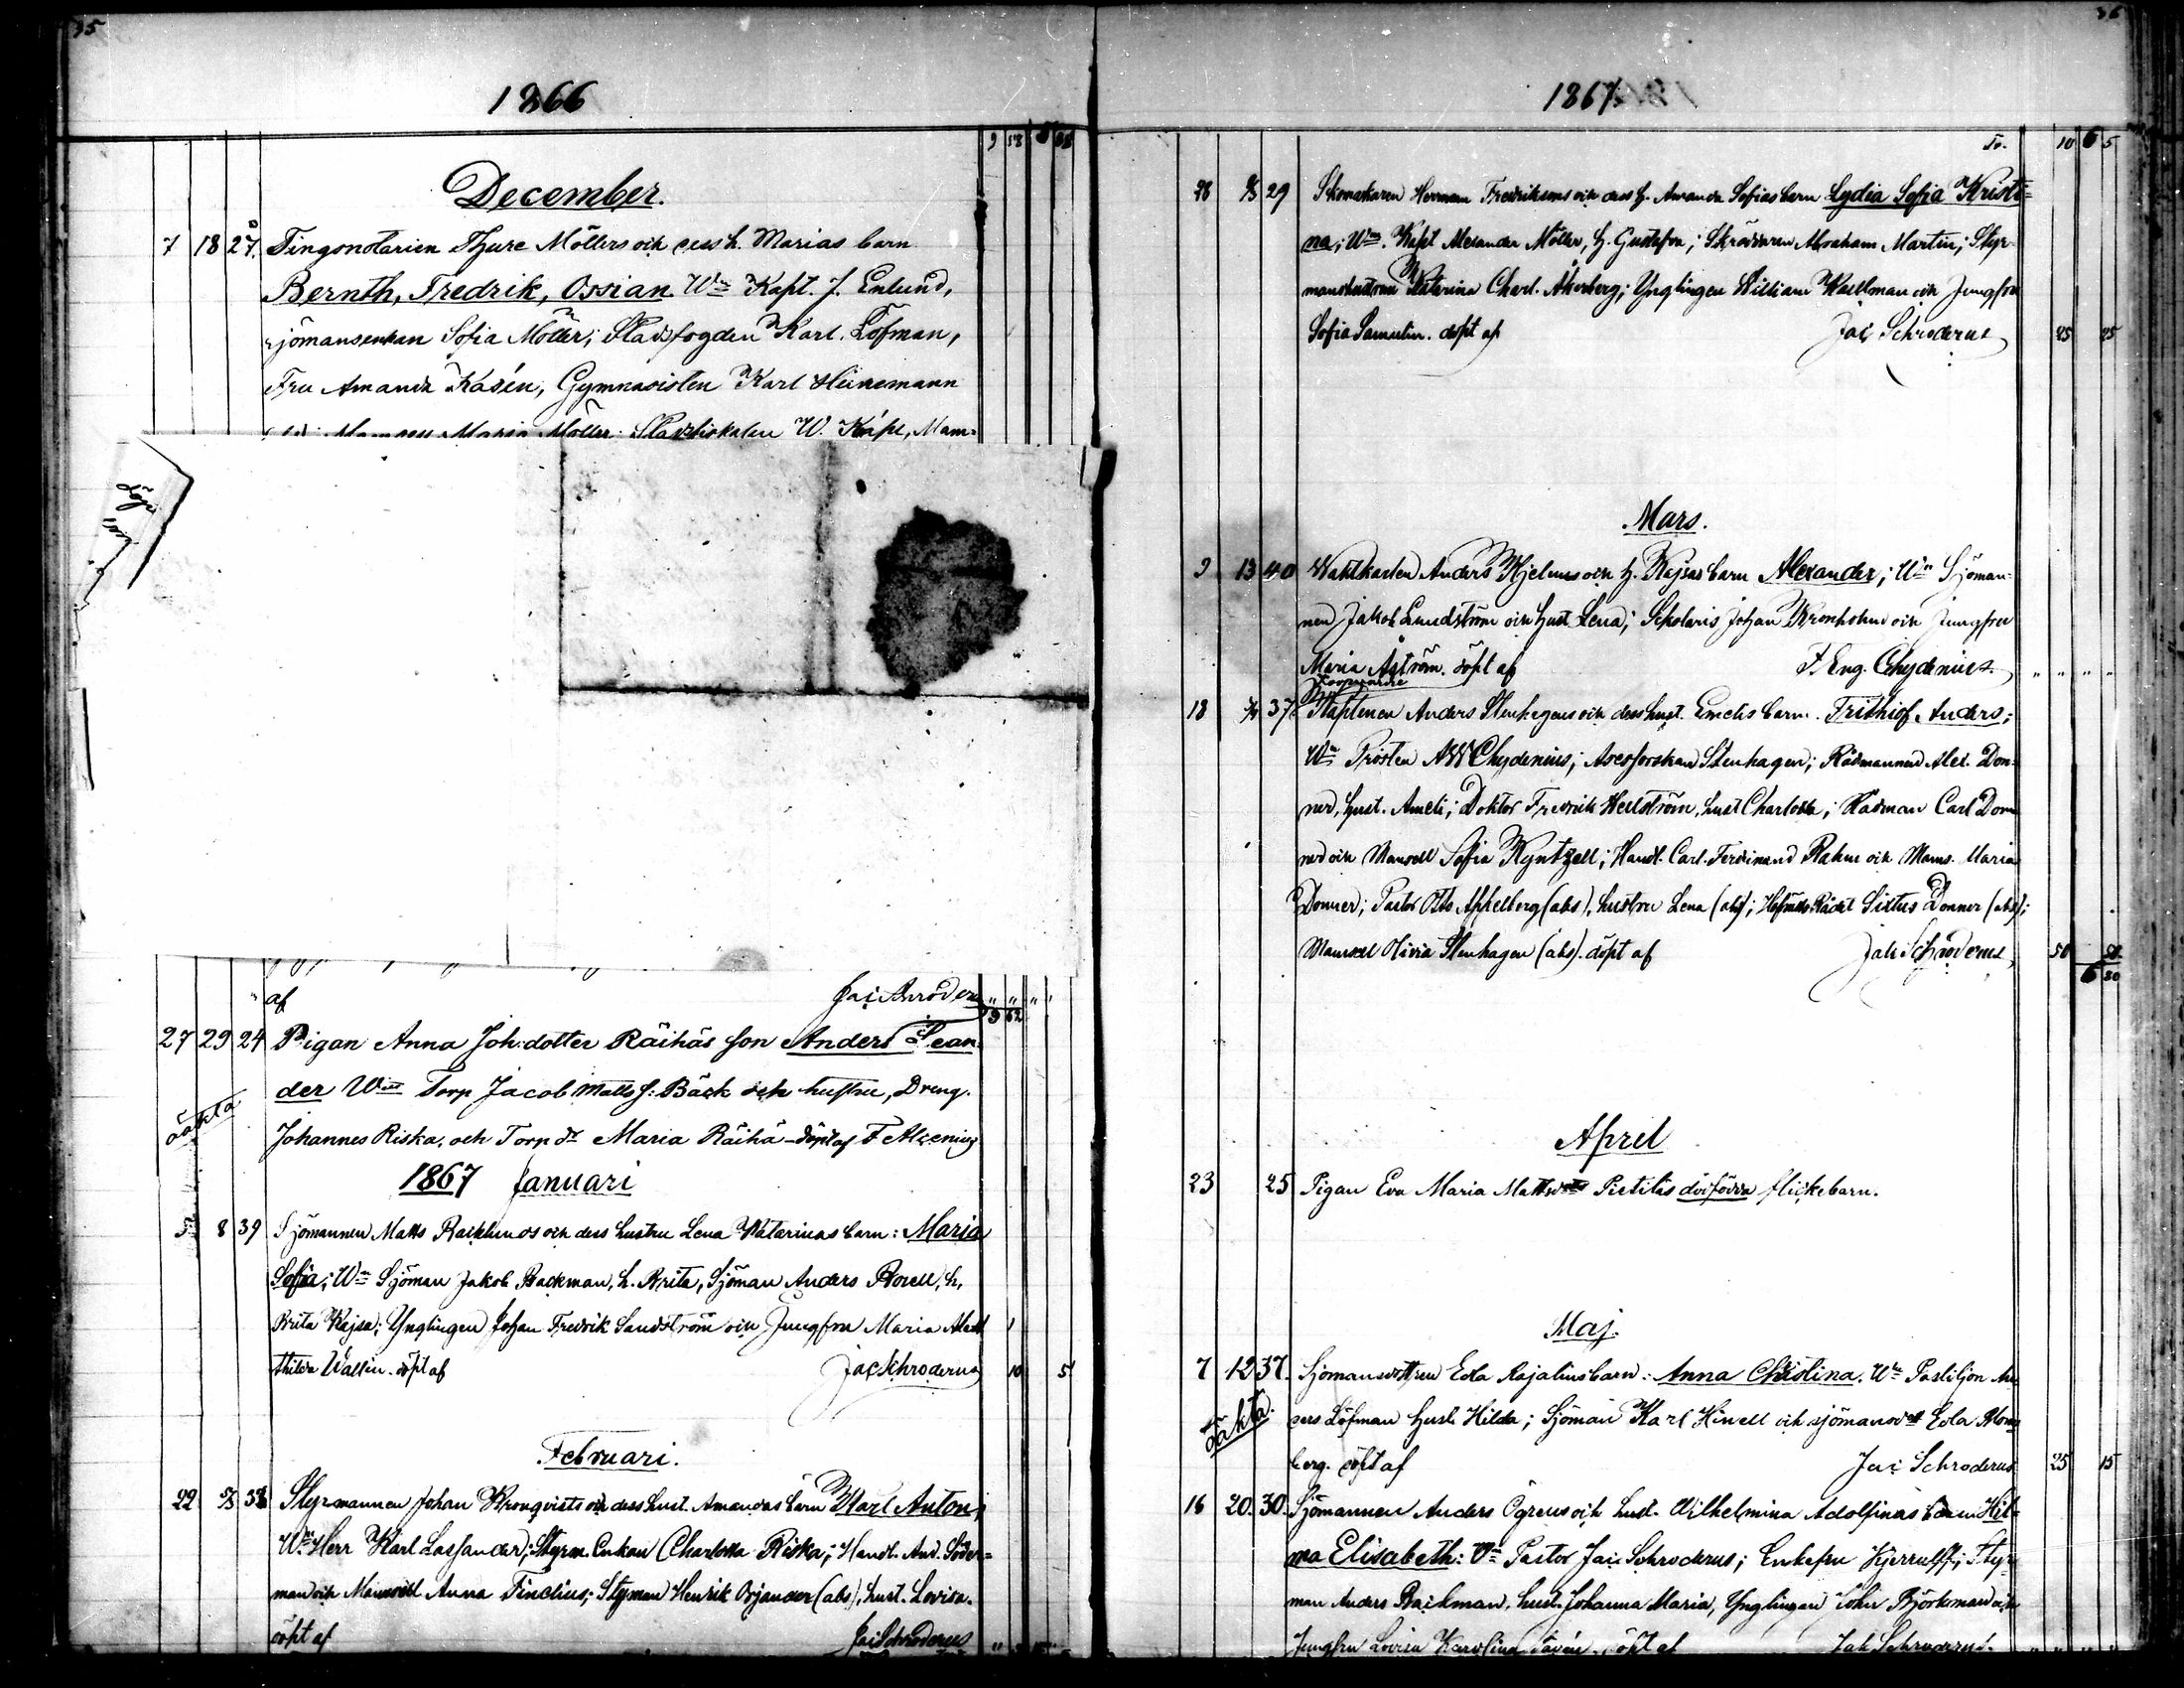 35
1866
9 58
December.
7 18 27. Tingsnotarien Thure Möllers och dess h. Marias barn
Bernth, Fredrik, Ossian. Wn Kapt. J. Enlund,
sjömansenkan Sofia Möller; Stadsfogden Karl Löfman,
Fru Amanda Kasén, Gymnasisten Karl Heinemann
Maria Möller. Stadsfiskalen W. Mam=
af Jac Schroderus
9 62
27 29 24 Pigan Anna Joh:dotter Räihäs son Anders Lean=
der Wne Torp Jacob Matts s: Bäck och hustru, Dreng.
oäkta
Johannes Riska, och Torp dr Maria Räihä döpt af F Alcenius
1867 Januari
8 39 Sjömannen Matts Backlunds och dess hustru Lena Katarinas barn: Maria
Sofia; Wn Sjöman Jakob Backman, h. Brita, Sjöman Anders Borell, h.
Brita Kajsa; Ynglingen Johan Fredrik Sandström och Jungfru Maria
thilda Wallin. döpt af Jac Schroderus 10 5
Februari.
22 38 Styrmannen Johan Kronqvists och dess hust. Amandas barn Karl Anton;
Wn Herr Karl Lassander; Styrm. Enkan Charlotta Riska; Handl. And. Söder=
man och Mamsell Anna Finelius; Styrman Henrik Orjander (abs), hust. Lovisa.
döpt af Jac Schroderus
36
1867
Tr. 10 6 5
28 29 Skomakaren Herman Fredriksons och dess h. Amanda Sofias barn Lydia Sofia Kristi=
na; Wne. Kapt Alexander Möller, h. Gustafva; Skräddaren Abraham Martin; Styr=
manshustrun Katarina Charl. Åkerberg; Ynglingen William Wallman och Jungfru
Sofia Samulin. döpt af Jac Schroderus 25 25
Mars.
9 13 40 Waktkarlen Anders Hjelms och h. Kajsas barn Alexander; Wn Sjöman=
nen Jakob Lundström och hust Lena; Scholaris Johan Kronholm och Jungfru
Maria Åström. döpt af F. Eng. Chydenius.
Koopvardie
18 37. Kaptenen Anders Stenhagens och dess hust. Emelis barn. Frithiof Anders;
Wn Prosten AW Chydenius; Assessorskan Stenhagen; Rådmannen Alex. Don=
ner, hust. Ameli; Doktor Fredrik Hellström, hust Charlotta; Rådman Carl Don
ner och Mamsell Sofia Kyntzell; Handl. Carl Ferdinand Rahm och Mams. Maria
Donner; Pastor Otto Appelberg (abs), hustru Lena (abs); Hofrätts Rådet Sixtus Donner (abs);
Mamsell Olivia Stenhagen (abs). döpt af Jak Schroderus 50 50
6 80
April
23 25 Pigan Eva Maria Pietilas dödfödda flickebarn.
Maj.
7 12 37. Sjömansdottren Eda Rajalins barn: Anna Christina. Wn Postiljon An
ders Löfman hust. Hilda; Sjöman Karl Hinell och sjömansdr Eda Blom
oäkta.
berg. döpt af Jac Schroderus 25 15
16 20. 30. Sjömannen Anders Ögrens och hust. Wilhelmina Adolfinas barn Hil=
ma Elisabeth: Wn Pastor Jac Schroderus; Enkefru Hjerrulff; Styr
man Anders Backman, hust. Johanna Maria, Ynglingen John Björkman och
Jungfru Lovisa Karolina döpt af Jak Schroderus.